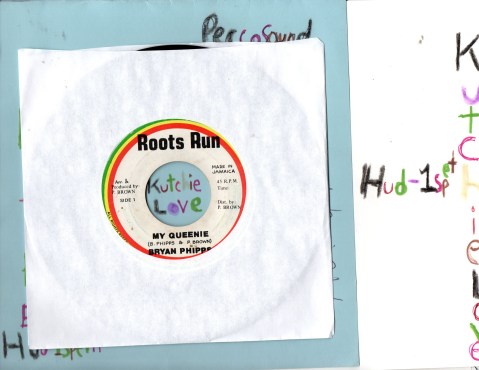 Percosound
Roots Run
Arr. &
Produced by:
P. BROWN
SIDE 1
MADE IN
JAMAICA
45 R.P.M.
Dist. by:
P. BROWN
Kutchie
Love
MY QUEENIE
(B. PHIPPS & P. BROWN)
BRYAN PHIPPS
Hud-1spet
Kutchie Love